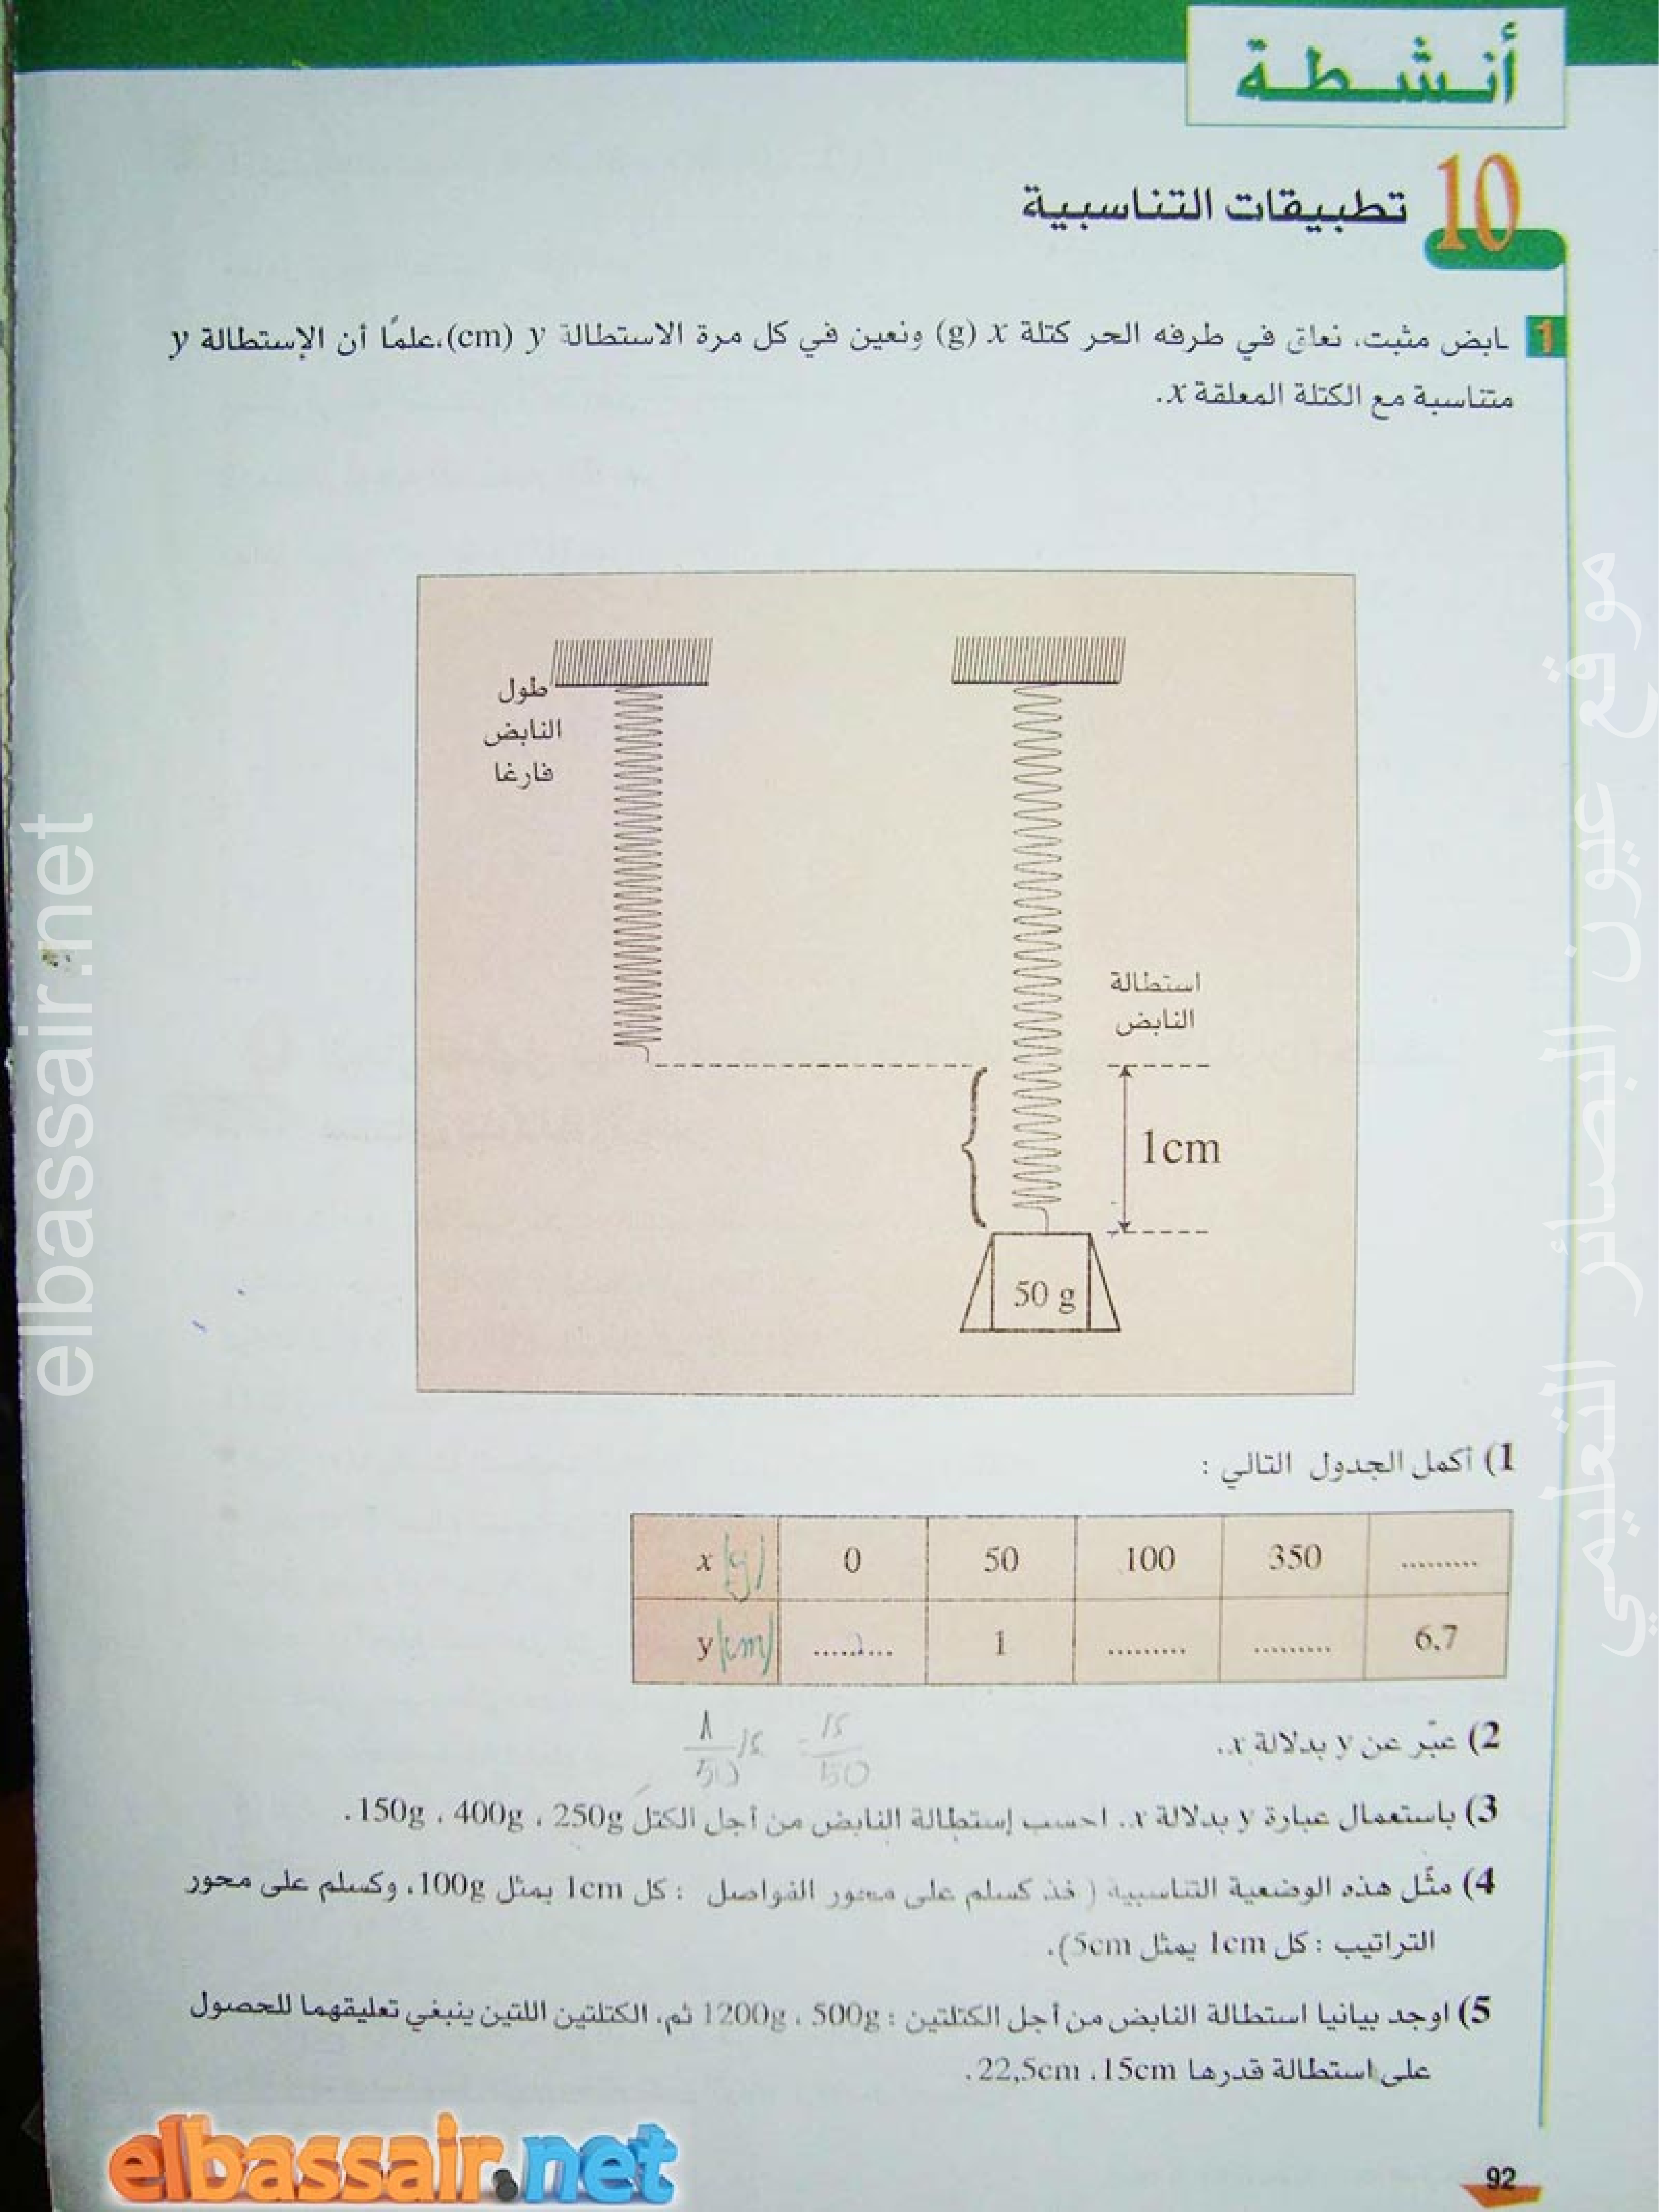 أنشطة
10 تطبيقات التناسبية
1 نابض مثبت، نعلق في طرفه الحر كتلة x (g) ونعين في كل مرة الاستطالة y (cm)،علمًا أن الإستطالة y
متناسبة مع الكتلة المعلقة x.
طول
النابض
فارغا
استطالة
النابض
1cm
50 g
1) أكمل الجدول التالي :
x (g) 0 50 100 350 .........
y (cm) ......... 1 ......... ......... 6.7
2) عبّر عن y بدلالة x.
3) باستعمال عبارة y بدلالة x.. احسب إستطالة النابض من أجل الكتل 250g ، 400g ، 150g.
4) مثّل هذه الوضعية التناسبية ( خذ كسلم على محور الفواصل : كل 1cm يمثل 100g، وكسلم على محور
التراتيب : كل 1cm يمثل 5cm).
5) اوجد بيانيا استطالة النابض من أجل الكتلتين : 500g ، 1200g ثم، الكتلتين اللتين ينبغي تعليقهما للحصول
على استطالة قدرها 15cm ، 22,5cm.
92
elbassair.net
elbassair.net
موقع عيون البصائر التعليمي